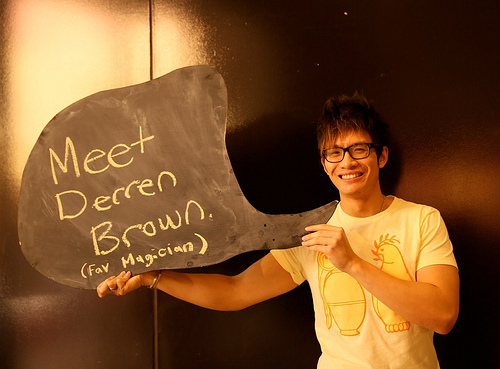 Meet
Derren
Brown.
(Fav Magician)